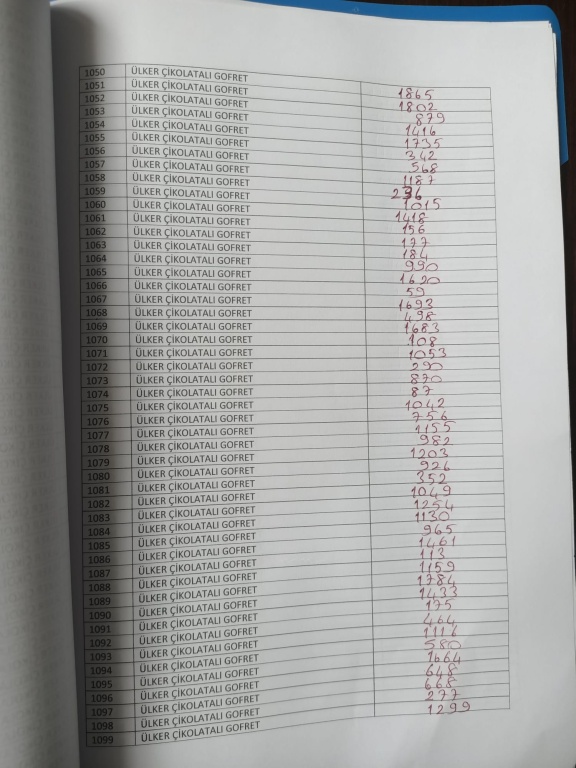 1050 ÜLKER ÇİKOLATALI GOFRET 1865
1051 ÜLKER ÇİKOLATALI GOFRET 1802
1052 ÜLKER ÇİKOLATALI GOFRET 879
1053 ÜLKER ÇİKOLATALI GOFRET 1416
1054 ÜLKER ÇİKOLATALI GOFRET 1735
1055 ÜLKER ÇİKOLATALI GOFRET 342
1056 ÜLKER ÇİKOLATALI GOFRET 568
1057 ÜLKER ÇİKOLATALI GOFRET 1187
1058 ÜLKER ÇİKOLATALI GOFRET 236
1059 ÜLKER ÇİKOLATALI GOFRET 1015
1060 ÜLKER ÇİKOLATALI GOFRET 1418
1061 ÜLKER ÇİKOLATALI GOFRET 156
1062 ÜLKER ÇİKOLATALI GOFRET 177
1063 ÜLKER ÇİKOLATALI GOFRET 184
1064 ÜLKER ÇİKOLATALI GOFRET 990
1065 ÜLKER ÇİKOLATALI GOFRET 1620
1066 ÜLKER ÇİKOLATALI GOFRET 59
1067 ÜLKER ÇİKOLATALI GOFRET 1693
1068 ÜLKER ÇİKOLATALI GOFRET 498
1069 ÜLKER ÇİKOLATALI GOFRET 1683
1070 ÜLKER ÇİKOLATALI GOFRET 108
1071 ÜLKER ÇİKOLATALI GOFRET 1053
1072 ÜLKER ÇİKOLATALI GOFRET 290
1073 ÜLKER ÇİKOLATALI GOFRET 870
1074 ÜLKER ÇİKOLATALI GOFRET 87
1075 ÜLKER ÇİKOLATALI GOFRET 1042
1076 ÜLKER ÇİKOLATALI GOFRET 756
1077 ÜLKER ÇİKOLATALI GOFRET 1155
1078 ÜLKER ÇİKOLATALI GOFRET 982
1079 ÜLKER ÇİKOLATALI GOFRET 1203
1080 ÜLKER ÇİKOLATALI GOFRET 926
1081 ÜLKER ÇİKOLATALI GOFRET 352
1082 ÜLKER ÇİKOLATALI GOFRET 1049
1083 ÜLKER ÇİKOLATALI GOFRET 1254
1084 ÜLKER ÇİKOLATALI GOFRET 1130
1085 ÜLKER ÇİKOLATALI GOFRET 965
1086 ÜLKER ÇİKOLATALI GOFRET 1461
1087 ÜLKER ÇİKOLATALI GOFRET 113
1088 ÜLKER ÇİKOLATALI GOFRET 1159
1089 ÜLKER ÇİKOLATALI GOFRET 1784
1090 ÜLKER ÇİKOLATALI GOFRET 1433
1091 ÜLKER ÇİKOLATALI GOFRET 175
1092 ÜLKER ÇİKOLATALI GOFRET 464
1093 ÜLKER ÇİKOLATALI GOFRET 1116
1094 ÜLKER ÇİKOLATALI GOFRET 580
1095 ÜLKER ÇİKOLATALI GOFRET 1664
1096 ÜLKER ÇİKOLATALI GOFRET 648
1097 ÜLKER ÇİKOLATALI GOFRET 668
1098 ÜLKER ÇİKOLATALI GOFRET 277
1099 ÜLKER ÇİKOLATALI GOFRET 1299